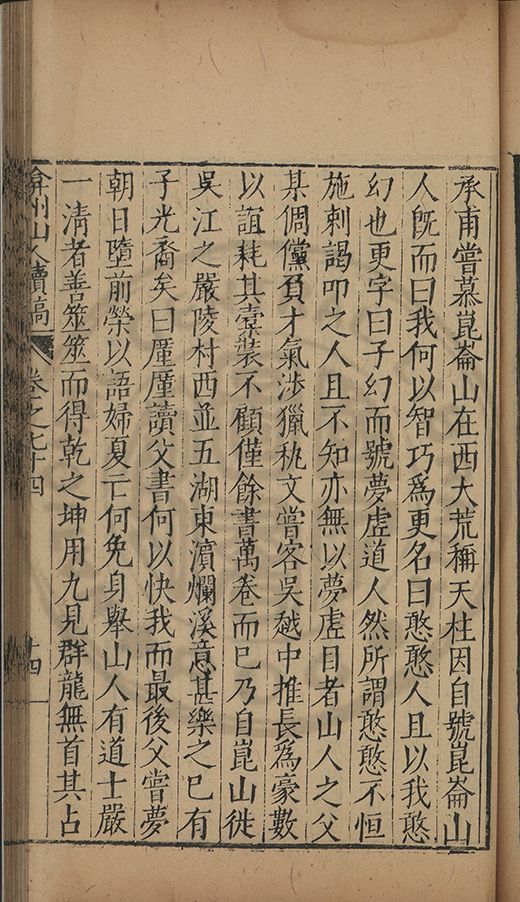 承甫嘗慕崑崙山在西大荒稱天柱因自號崑崙山
人旣而曰我何以智巧爲更名曰憨憨人且以我憨
幻也更字曰子幻而號夢虛道人然所謂憨憨不恒
施刺謁叩之人且不知亦無以夢虛目者山人之父
某倜儻負才氣涉獵秇文嘗客吳越中推長爲豪數
以誼耗其橐裝不顧僅餘書萬卷而已乃自崑山徙
吳江之嚴陵村西並五湖東濵爛溪意甚樂之已有
子光裔矣曰厪厪讀父書何以快我而最後父嘗夢
朝日墮前榮以語婦夏亡何免身舉山人有道士嚴
一清者善筮筮而得乾之坤用九見群龍無首其占
弇州山人續稿 卷之七十四 十四